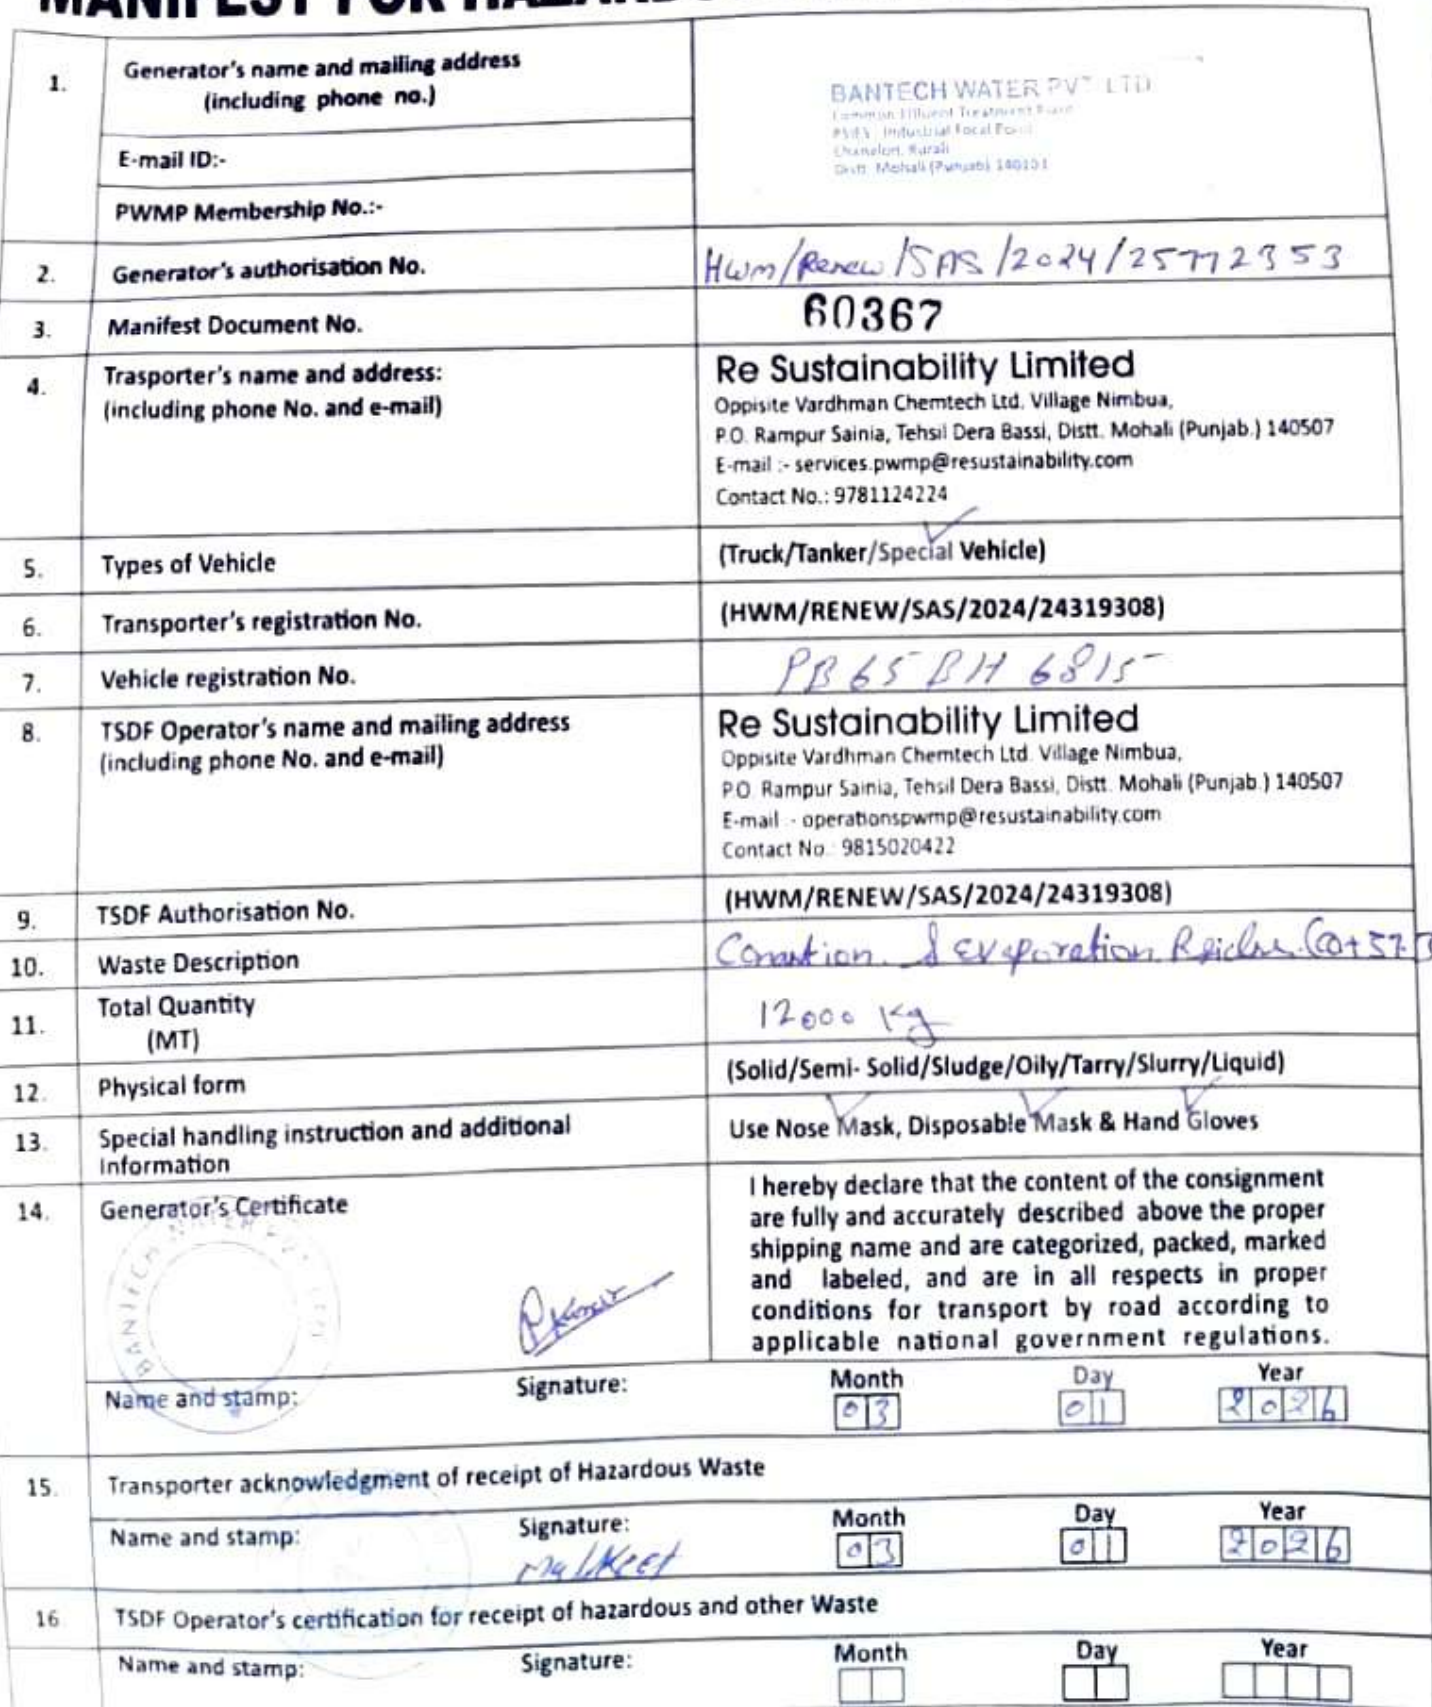 MANIFEST FOR
1.
Generator's name and mailing address
(including phone no.)
BANTECH WATER PVT LTD
Common Effluent Treatment Plant
Industrial Focal Point
Chanalon, Kurali
Distt. Mohali (Punjab) 140103
E-mail ID:-
PWMP Membership No.:-
2. Generator's authorisation No. Hwm/Renew/SAS/2024/25772353
3. Manifest Document No. 60367
4. Trasporter's name and address:
(including phone No. and e-mail)
Re Sustainability Limited
Oppisite Vardhman Chemtech Ltd. Village Nimbua,
P.O. Rampur Sainia, Tehsil Dera Bassi, Distt. Mohali (Punjab.) 140507
E-mail :- services.pwmp@resustainability.com
Contact No.: 9781124224
5. Types of Vehicle (Truck/Tanker/Special Vehicle)
6. Transporter's registration No. (HWM/RENEW/SAS/2024/24319308)
7. Vehicle registration No. PB65BH 6815
8. TSDF Operator's name and mailing address
(including phone No. and e-mail)
Re Sustainability Limited
Oppisite Vardhman Chemtech Ltd. Village Nimbua,
P.O. Rampur Sainia, Tehsil Dera Bassi, Distt. Mohali (Punjab.) 140507
E-mail :- operationspwmp@resustainability.com
Contact No.: 9815020422
9. TSDF Authorisation No. (HWM/RENEW/SAS/2024/24319308)
10. Waste Description & Evaporation
11. Total Quantity
(MT)
12000 Kg
12. Physical form (Solid/Semi- Solid/Sludge/Oily/Tarry/Slurry/Liquid)
13. Special handling instruction and additional
Information
Use Nose Mask, Disposable Mask & Hand Gloves
14. Generator's Certificate
BANTECH WATER PVT LTD
I hereby declare that the content of the consignment
are fully and accurately described above the proper
shipping name and are categorized, packed, marked
and labeled, and are in all respects in proper
conditions for transport by road according to
applicable national government regulations.
PKumar
Name and stamp: Signature: Month Day Year
03 01 2026
15. Transporter acknowledgment of receipt of Hazardous Waste
Name and stamp: Signature: Month Day Year
Malkeet 03 01 2026
16 TSDF Operator's certification for receipt of hazardous and other Waste
Name and stamp: Signature: Month Day Year